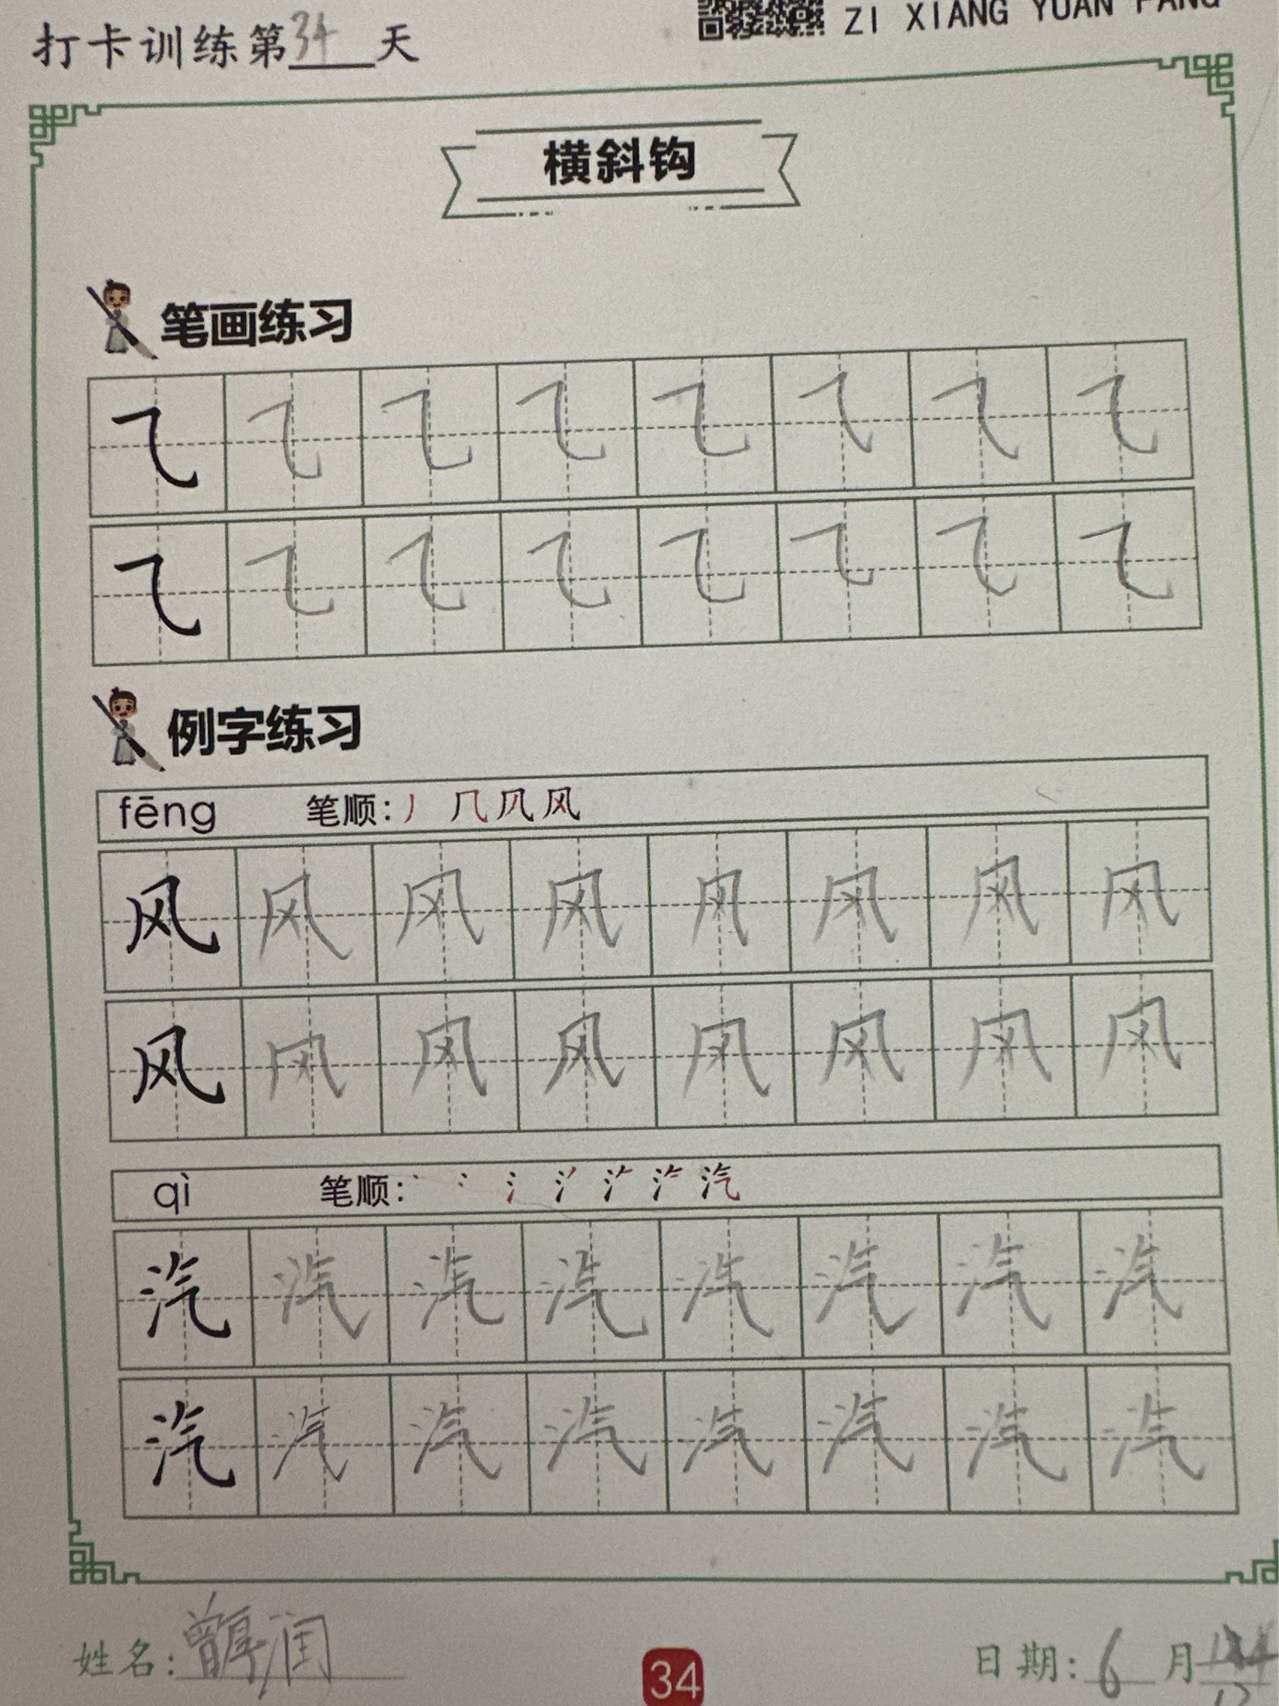 打卡训练第34天
ZI XIANG YUAN FANG
横斜钩
笔画练习
㇈ ㇈ ㇈ ㇈ ㇈ ㇈ ㇈ ㇈
㇈ ㇈ ㇈ ㇈ ㇈ ㇈ ㇈ ㇈
例字练习
fēng 笔顺:丿 几 凤 风
风 风 风 风 风 风 风 风
风 风 风 风 风 风 风 风
qì 笔顺:
汽 汽 汽 汽 汽 汽 汽 汽
汽 汽 汽 汽 汽 汽 汽 汽
姓名:曾厚润
34
日期:6月